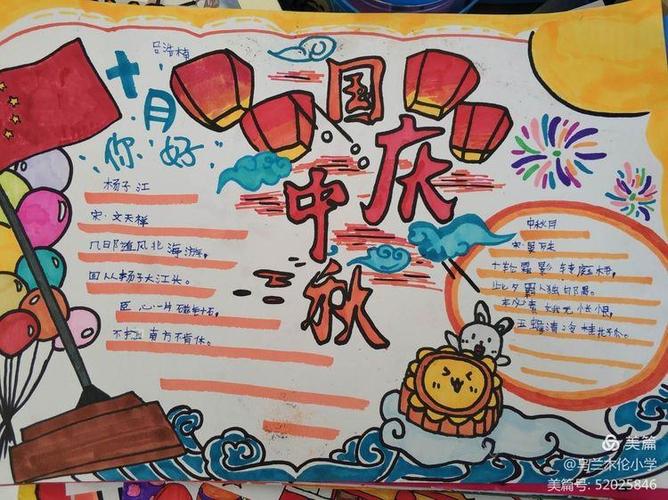 吕浩楠
十月
你好
国庆
中秋
杨子江
宋·文天祥
几日随风北海游,
回从扬子大江头。
臣心一片磁针石,
不指南方不肯休。
中秋月
宋·晏殊
十轮霜影转庭梧,
此夕羁人独向隅。
未必素娥无怅恨,
玉蟾清冷桂花孤。
美篇
@乌兰木伦小学
美篇号: 52025846